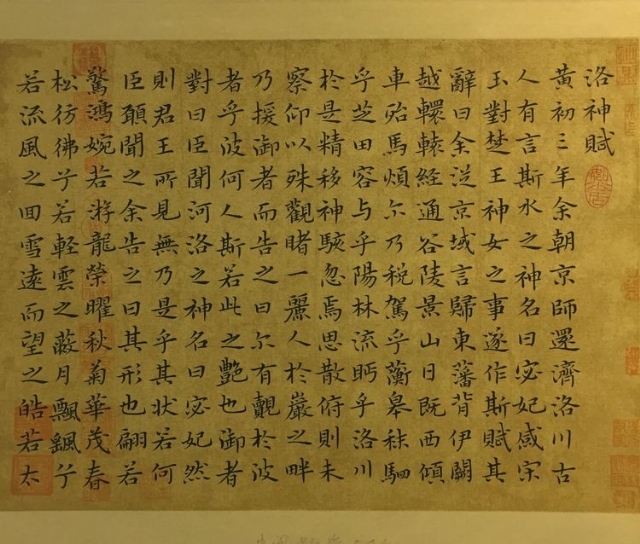 洛神賦
黄初三年余朝京師還濟洛川古
人有言斯水之神名曰宓妃感宋
玉對楚王神女之事遂作斯賦其
辭曰余從京域言歸東藩背伊闕
越轘轅經通谷陵景山日既西傾
車殆馬煩尔乃税駕乎蘅皋秣駟
乎芝田容与乎陽林流眄乎洛川
於是精移神駭忽焉思散俯則未
察仰以殊觀睹一麗人於巖之畔
乃援御者而告之曰尔有覿於彼
者乎彼何人斯若此之艷也御者
對曰臣聞河洛之神名曰宓妃然
則君王所見無乃是乎其狀若何
臣願聞之余告之曰其形也翩若
驚鴻婉若游龍榮曜秋菊華茂春
松彷彿兮若輕雲之蔽月飄颻兮
若流風之回雪遠而望之皓若太